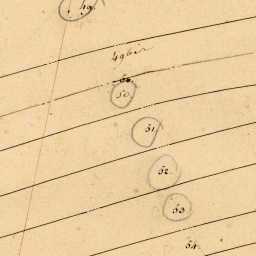 49.
49 bis
50.
51
52.
53
54.